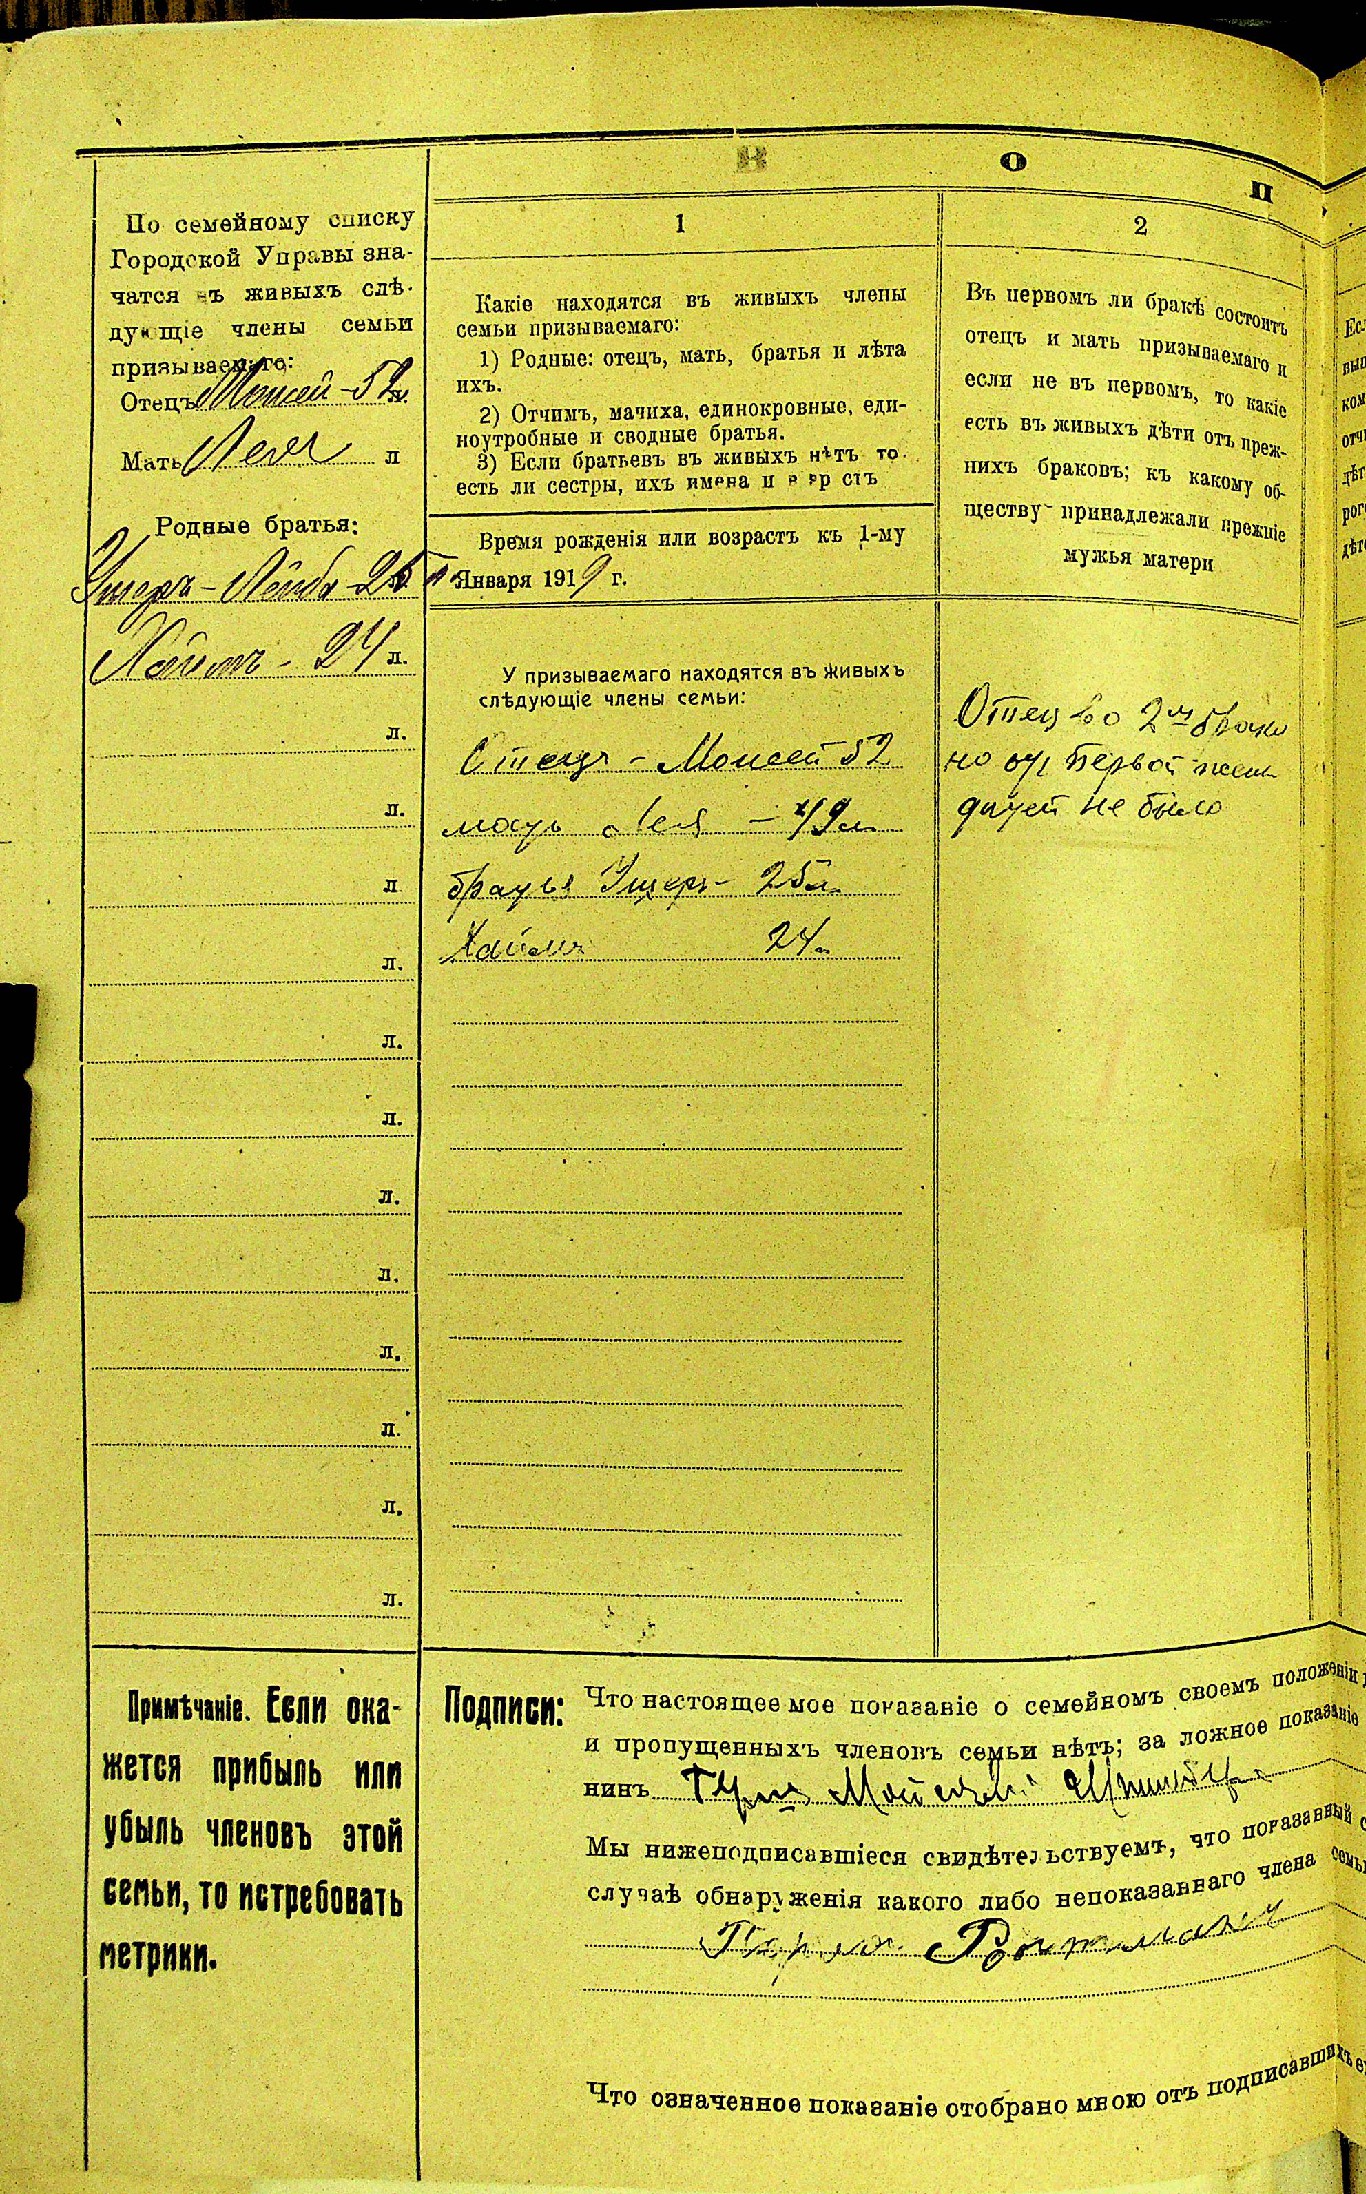 В О П
По семейному списку
Городской Управы зна-
чатся въ живыхъ слѣ-
дующіе члены семьи
призываемаго:
Отецъ Моисей - 52 л.
Мать Лея л
Родные братья:
Ушеръ - Лейба - 25 л.
Хаимъ - 24 л.
л.
л.
л
л.
л.
л.
л.
л.
л.
л.
л.
л.
1
Какіе находятся въ живыхъ члены
семьи призываемаго:
1) Родные: отецъ, мать, братья и лѣта
ихъ.
2) Отчимъ, мачиха, единокровные, еди-
ноутробные и сводные братья.
3) Если братьевъ въ живыхъ нѣтъ то
есть ли сестры, ихъ имена и в зр стъ
Время рожденія или возрастъ къ 1-му
Января 1919 г.
У призываемаго находятся въ живыхъ
слѣдующіе члены семьи:
Отецъ - Моисей 52
мать Лея - 49 л.
братья Ушеръ - 25 л.
Хаимъ 24 л
2
Въ первомъ ли бракѣ состоитъ
отецъ и мать призываемаго и
если не въ первомъ, то какіе
есть въ живыхъ дѣти отъ преж-
нихъ браковъ; къ какому об-
ществу принадлежали прежніе
мужья матери
Отец во 2м браке
но от первой жены
детей не было
Примѣчаніе. Если ока-
жется прибыль или
убыль членовъ этой
семьи, то истребовать
метрики.
Подписи: Что настоящее мое показаніе о семейномъ своемъ положеніи
и пропущенныхъ членовъ семьи нѣтъ; за ложное показаніе
нинъ
Мы нижеподписавшіеся свидѣтельствуемъ, что показанный с
случаѣ обнаруженія какого либо непоказаннаго члена семьи
Что означенное показаніе отобрано мною отъ подписавшихъ е